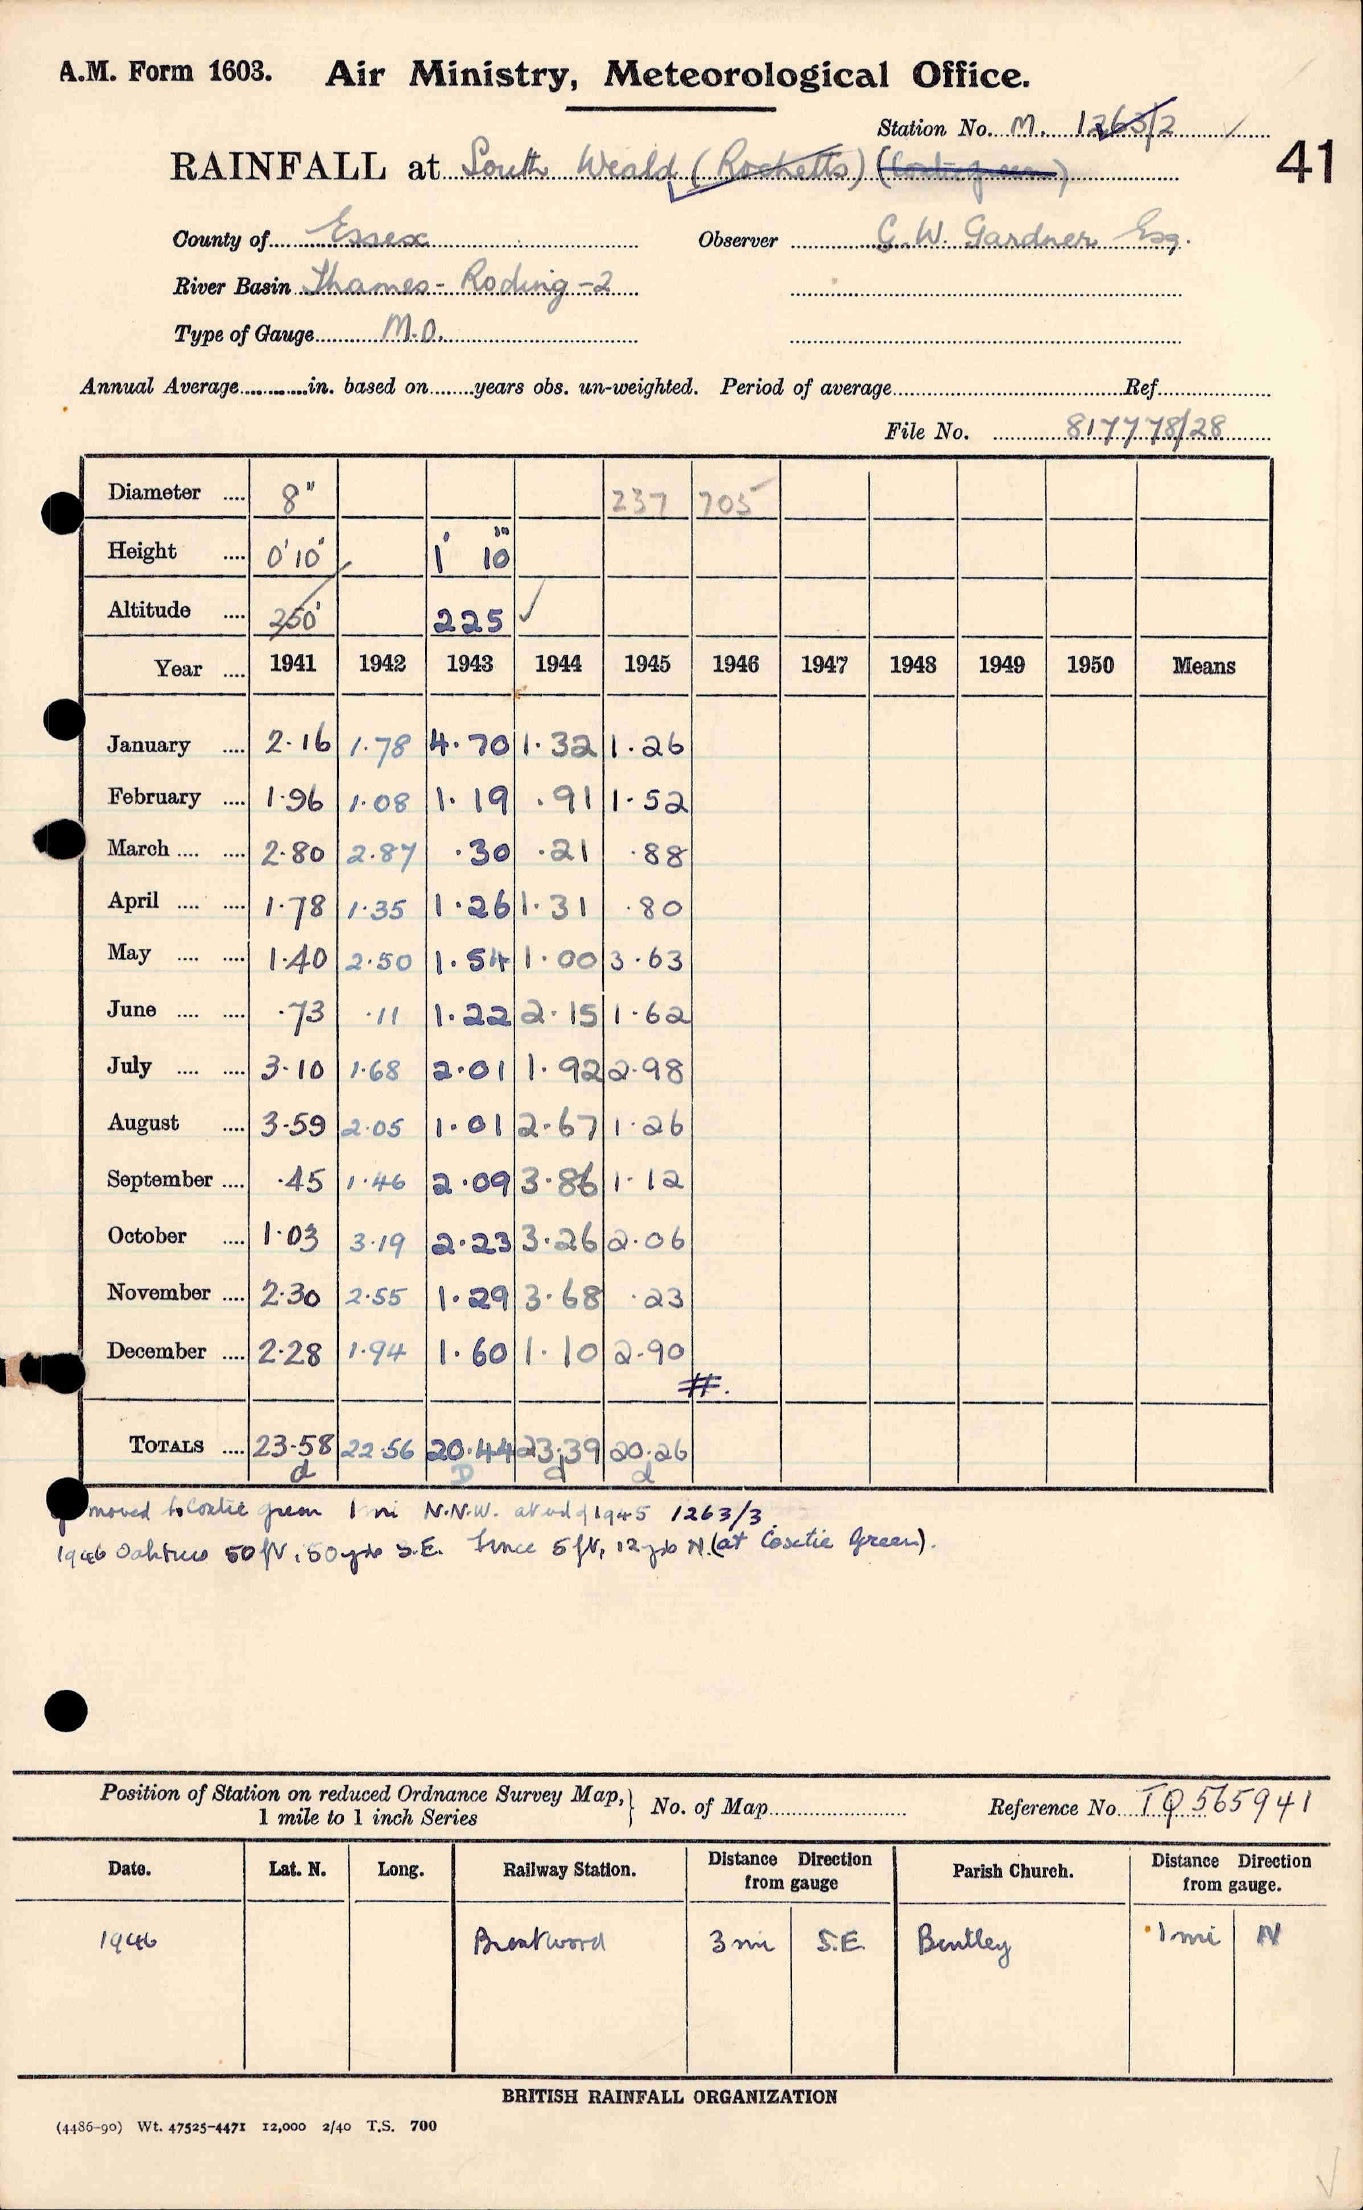 A.M. Form 1603. Air Ministry, Meteorological Office.
Station No. M. 1263/2
41
RAINFALL at South Weald (Rochetts) (Coxtie green)
County of Essex Observer G. W. Gardner Esq.
River Basin Thames - Roding - 2
Type of Gauge M.O.
Annual Average in. based on years obs. un-weighted. Period of average Ref.
File No. 817778/28
Diameter 8" 237 705
Height 0'10" 1' 10"
Altitude 250' 225
Year 1941 1942 1943 1944 1945 1946 1947 1948 1949 1950 Means
January 2.16 1.78 4.70 1.32 1.26
February 1.96 1.08 1.19 .91 1.52
March 2.80 2.87 .30 .21 .88
April 1.78 1.35 1.26 1.31 .80
May 1.40 2.50 1.54 1.00 3.63
June .73 .11 1.22 2.15 1.62
July 3.10 1.68 2.01 1.92 2.98
August 3.59 2.05 1.01 2.67 1.26
September .45 1.46 2.09 3.86 1.12
October 1.03 3.19 2.23 3.26 2.06
November 2.30 2.55 1.29 3.68 .23
December 2.28 1.94 1.60 1.10 2.90
#.
TOTALS 23.58 22.56 20.44 23.39 20.26
d D d d
moved to Coxtie green 1 mi N.N.W. at end of 1945 1263/3.
1946 Oaktree 50 ft, 50 yds S.E. Fence 5 ft, 12 yds N. (at Coxtie Green).
Position of Station on reduced Ordnance Survey Map, 1 mile to 1 inch Series } No. of Map Reference No. TQ 565941
Date. Lat. N. Long. Railway Station. Distance Direction from gauge Parish Church. Distance Direction from gauge.
1946 Brentwood 3 mi S.E. Bentley 1 mi N
BRITISH RAINFALL ORGANIZATION
(4486-90) Wt. 47525-4471 12,000 2/40 T.S. 700